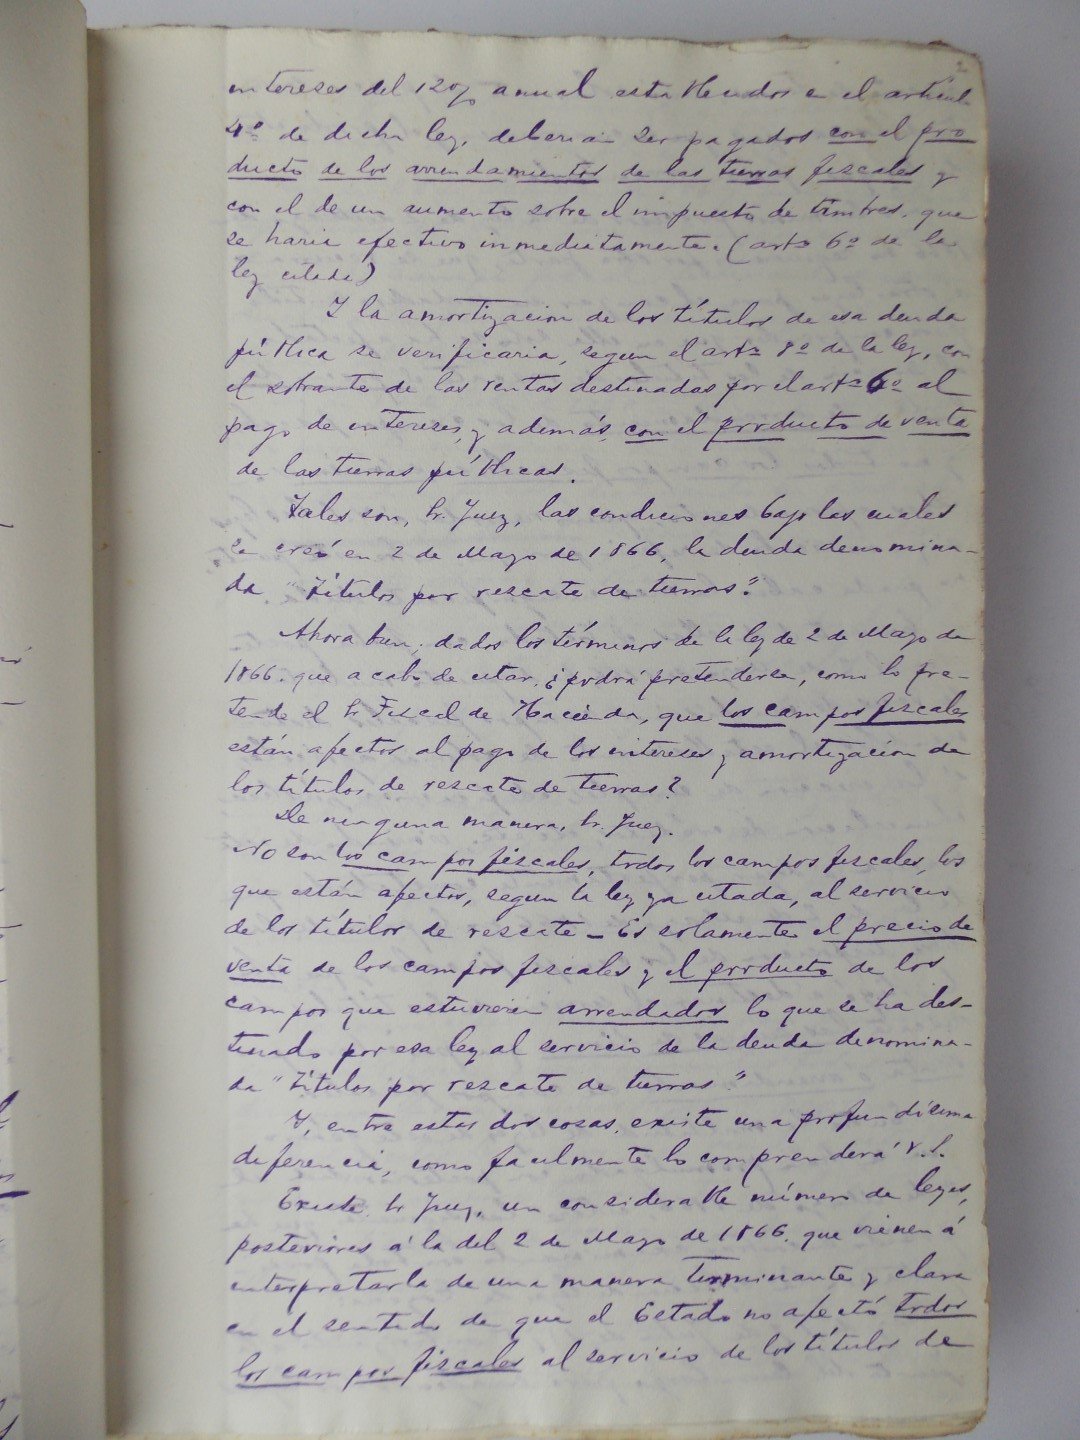 2
intereses del 12% anual establecidos en el articul
4º de dicha ley, deberian ser pagados con el pro
ducto de los arrendamientos de las tierras fiscales y
con el de un aumento sobre el impuesto de timbres, que
se haria efectivo inmediatamente. (artº 6º de la
ley citada)
I la amortizacion de los títulos de esa deuda
pública se verificaria, segun el artº 8º de la ley, con
el sobrante de las rentas destinadas por el artº 6º al
pago de intereses, y además, con el producto de venta
de las tierras públicas.
Tales son, Sr. Juez, las condiciones bajo las cuales
se creó en 2 de Mayo de 1866, la deuda denomina-
da "Títulos por rescate de tierras".
Ahora bien; dados los términos de la ley de 2 de Mayo de
1866, que acabo de citar, ¿podrá pretenderse, como lo pre-
tende el Sr Fiscal de Hacienda, que los campos fiscales
están afectos al pago de los intereses y amortizacion de
los títulos de rescate de tierras?
De ninguna manera, Sr. Juez.
No son los campos fiscales, todos los campos fiscales, los
que están afectos, segun la ley ya citada, al servicio
de los títulos de rescate – Es solamente el precio de
venta de los campos fiscales y el producto de los
campos que estuvieren arrendados lo que se ha des-
tinado por esa ley al servicio de la deuda denomina-
da "Títulos por rescate de tierras."
I, entre estas dos cosas, existe una profundísima
diferencia, como facilmente lo comprenderá V.S.
Existe Sr Juez, un considerable número de leyes,
posteriores á la del 2 de Mayo de 1866, que vienen á
interpretarla de una manera terminante y clara
en el sentido de que el Estado no afectó todos
los campos fiscales al servicio de los títulos de